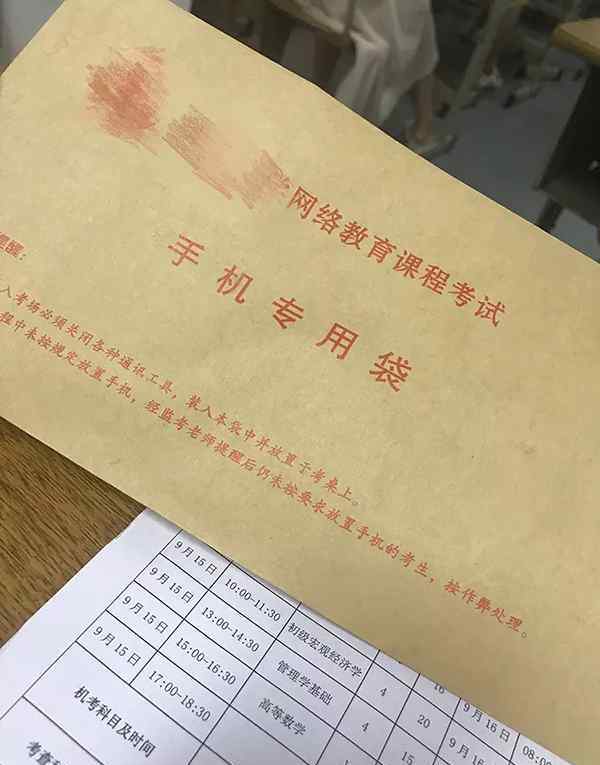 网络教育课程考试
手机专用袋
醒：
入考场必须关闭各种通讯工具，装入本袋中并放置于考桌上。
程中未按规定放置手机，经监考老师提醒后仍未按要求放置手机的考生，按作弊处理。
9月15日 10:00-11:30 初级宏观经济学 4 16 9月16日 08:00
9月15日 13:00-14:30 管理学基础 4 20 9月16日
9月15日 15:00-16:30 高等数学 15
9月15日 17:00-18:30
机考科目及时间
考查科